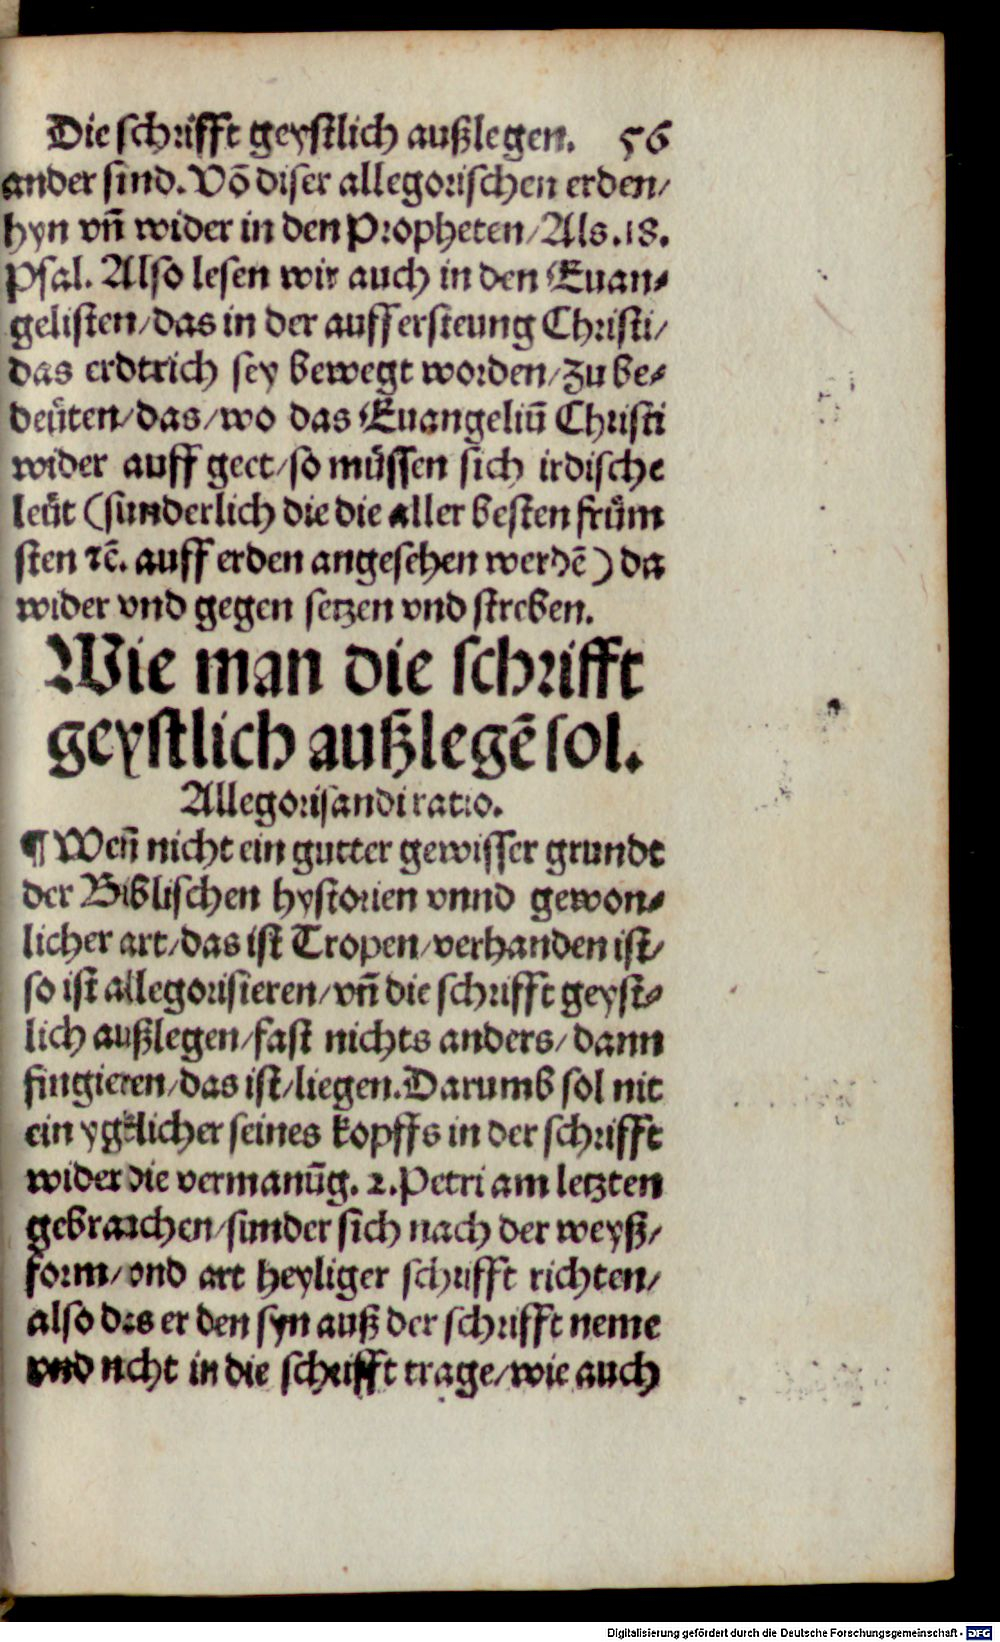 Die schrifft geystlich außlegen. 56
ander sind. Võ diser allegorischen erden/
hyn vñ wider in den Propheten/Als .18.
Psal. Also lesen wir auch in den Euan⸗
gelisten/das in der auffersteung Christi/
das erdtrich sey bewegt worden/zu be⸗
deüten/das/wo das Euangeliũ Christi
wider auff geet/so müssen sich irdische
leüt (sunderlich die die aller besten früm
sten ꝛc̃. auff erden angesehen werdẽ) da
wider vnd gegen setzen vnd streben.
Wie man die schrifft
geystlich außlegẽ sol.
Allegorisandi ratio.
¶ Weñ nicht ein gutter gewisser grundt
der Biblischen hystorien vnnd gewon⸗
licher art/das ist Tropen/verhanden ist/
so ist allegorisieren/vñ die schrifft geyst⸗
lich außlegen/fast nichts anders/dann
fingieren/das ist/liegen. Darumb sol nit
ein ygklicher seines kopffs in der schrifft
wider die vermanũg. 2. Petri am letzten
gebrauchen/sunder sich nach der weyß/
form/vnd art heyliger schrifft richten/
also das er den syn auß der schrifft neme
vnd nicht in die schrifft trage/wie auch
Digitalisierung gefördert durch die Deutsche Forschungsgemeinschaft - DFG